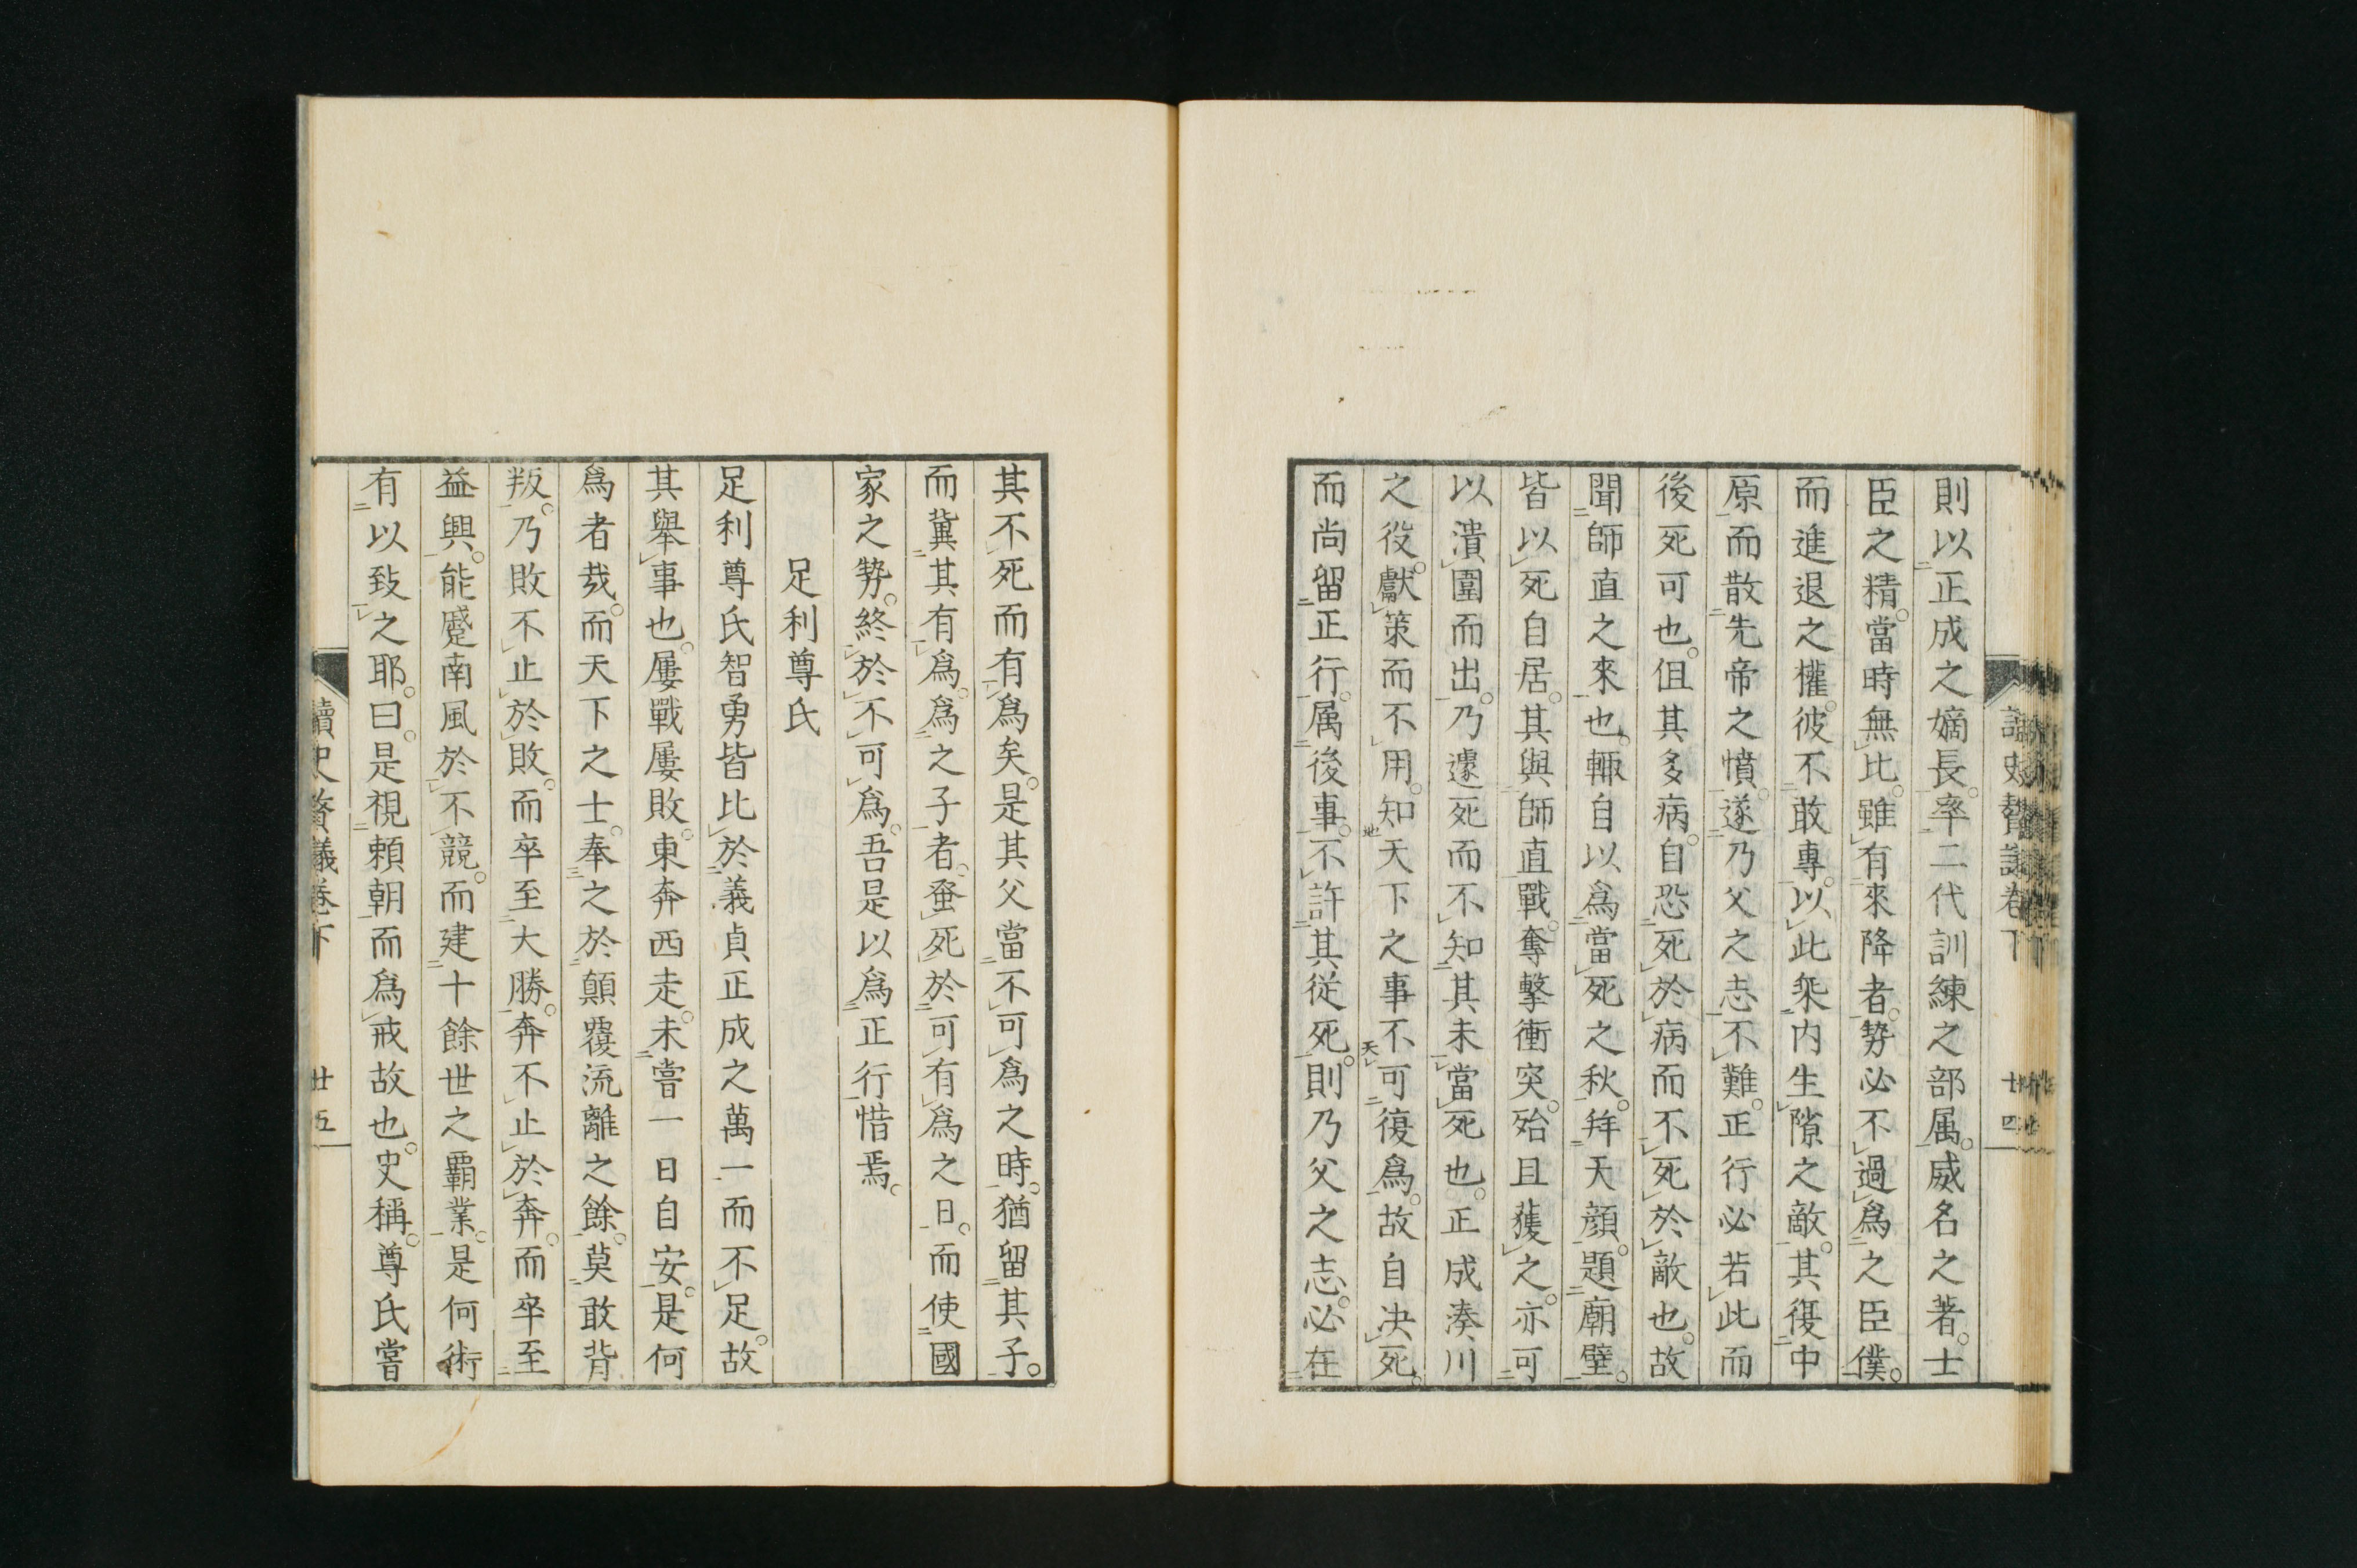 則以正成之嫡長。率二代訓練之部属。威名之著。士
臣之精。當時無比。雖有來降者。勢必不過爲之臣僕。
而進退之權。彼不敢專。以此乘内生隙之敵。其復中
原而散先帝之憤。遂乃父之志不難。正行必若此而
後死可也。但其多病。自恐死於病而不死於敵也。故
聞師直之來也。輙自以爲當死之秋。拜天顔。題廟壁。
皆以死自居。其與師直戰。奪擊衝突。殆且獲之。亦可
以潰圍而出。乃遽死而不知其未當死也。正成湊川
之役。獻策而不用。知天下之事不可復爲。故自决死。
而尚留正行。属後事。不許其従死。則乃父之志。必在
讀史贅議卷下
廿四
其不死而有爲矣。是其父當不可爲之時。猶留其子。
而冀其有爲。爲之子者。蚤死於可有爲之日。而使國
家之勢。終於不可爲。吾是以爲正行惜焉。
足利尊氏
足利尊氏智勇皆比於義貞正成之萬一而不足。故
其舉事也。屢戰屢敗。東奔西走。未嘗一日自安。是何
爲者哉。而天下之士。奉之於顛覆流離之餘。莫敢背
叛。乃敗不止於敗。而卒至大勝。奔不止於奔。而卒至
益興。能蹙南風於不競。而建十餘世之霸業。是何術
有以致之耶。曰。是視頼朝而爲戒故也。史稱。尊氏嘗
讀史贅議卷下
廿五